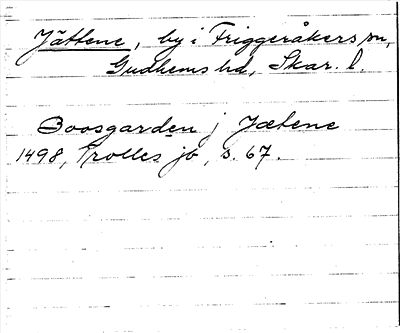 Jättene, by i Friggeråkers sn,
Gudhems hd, Skar. l.
Boosgarden j Jætene
1498, Trolles jb, s. 67.